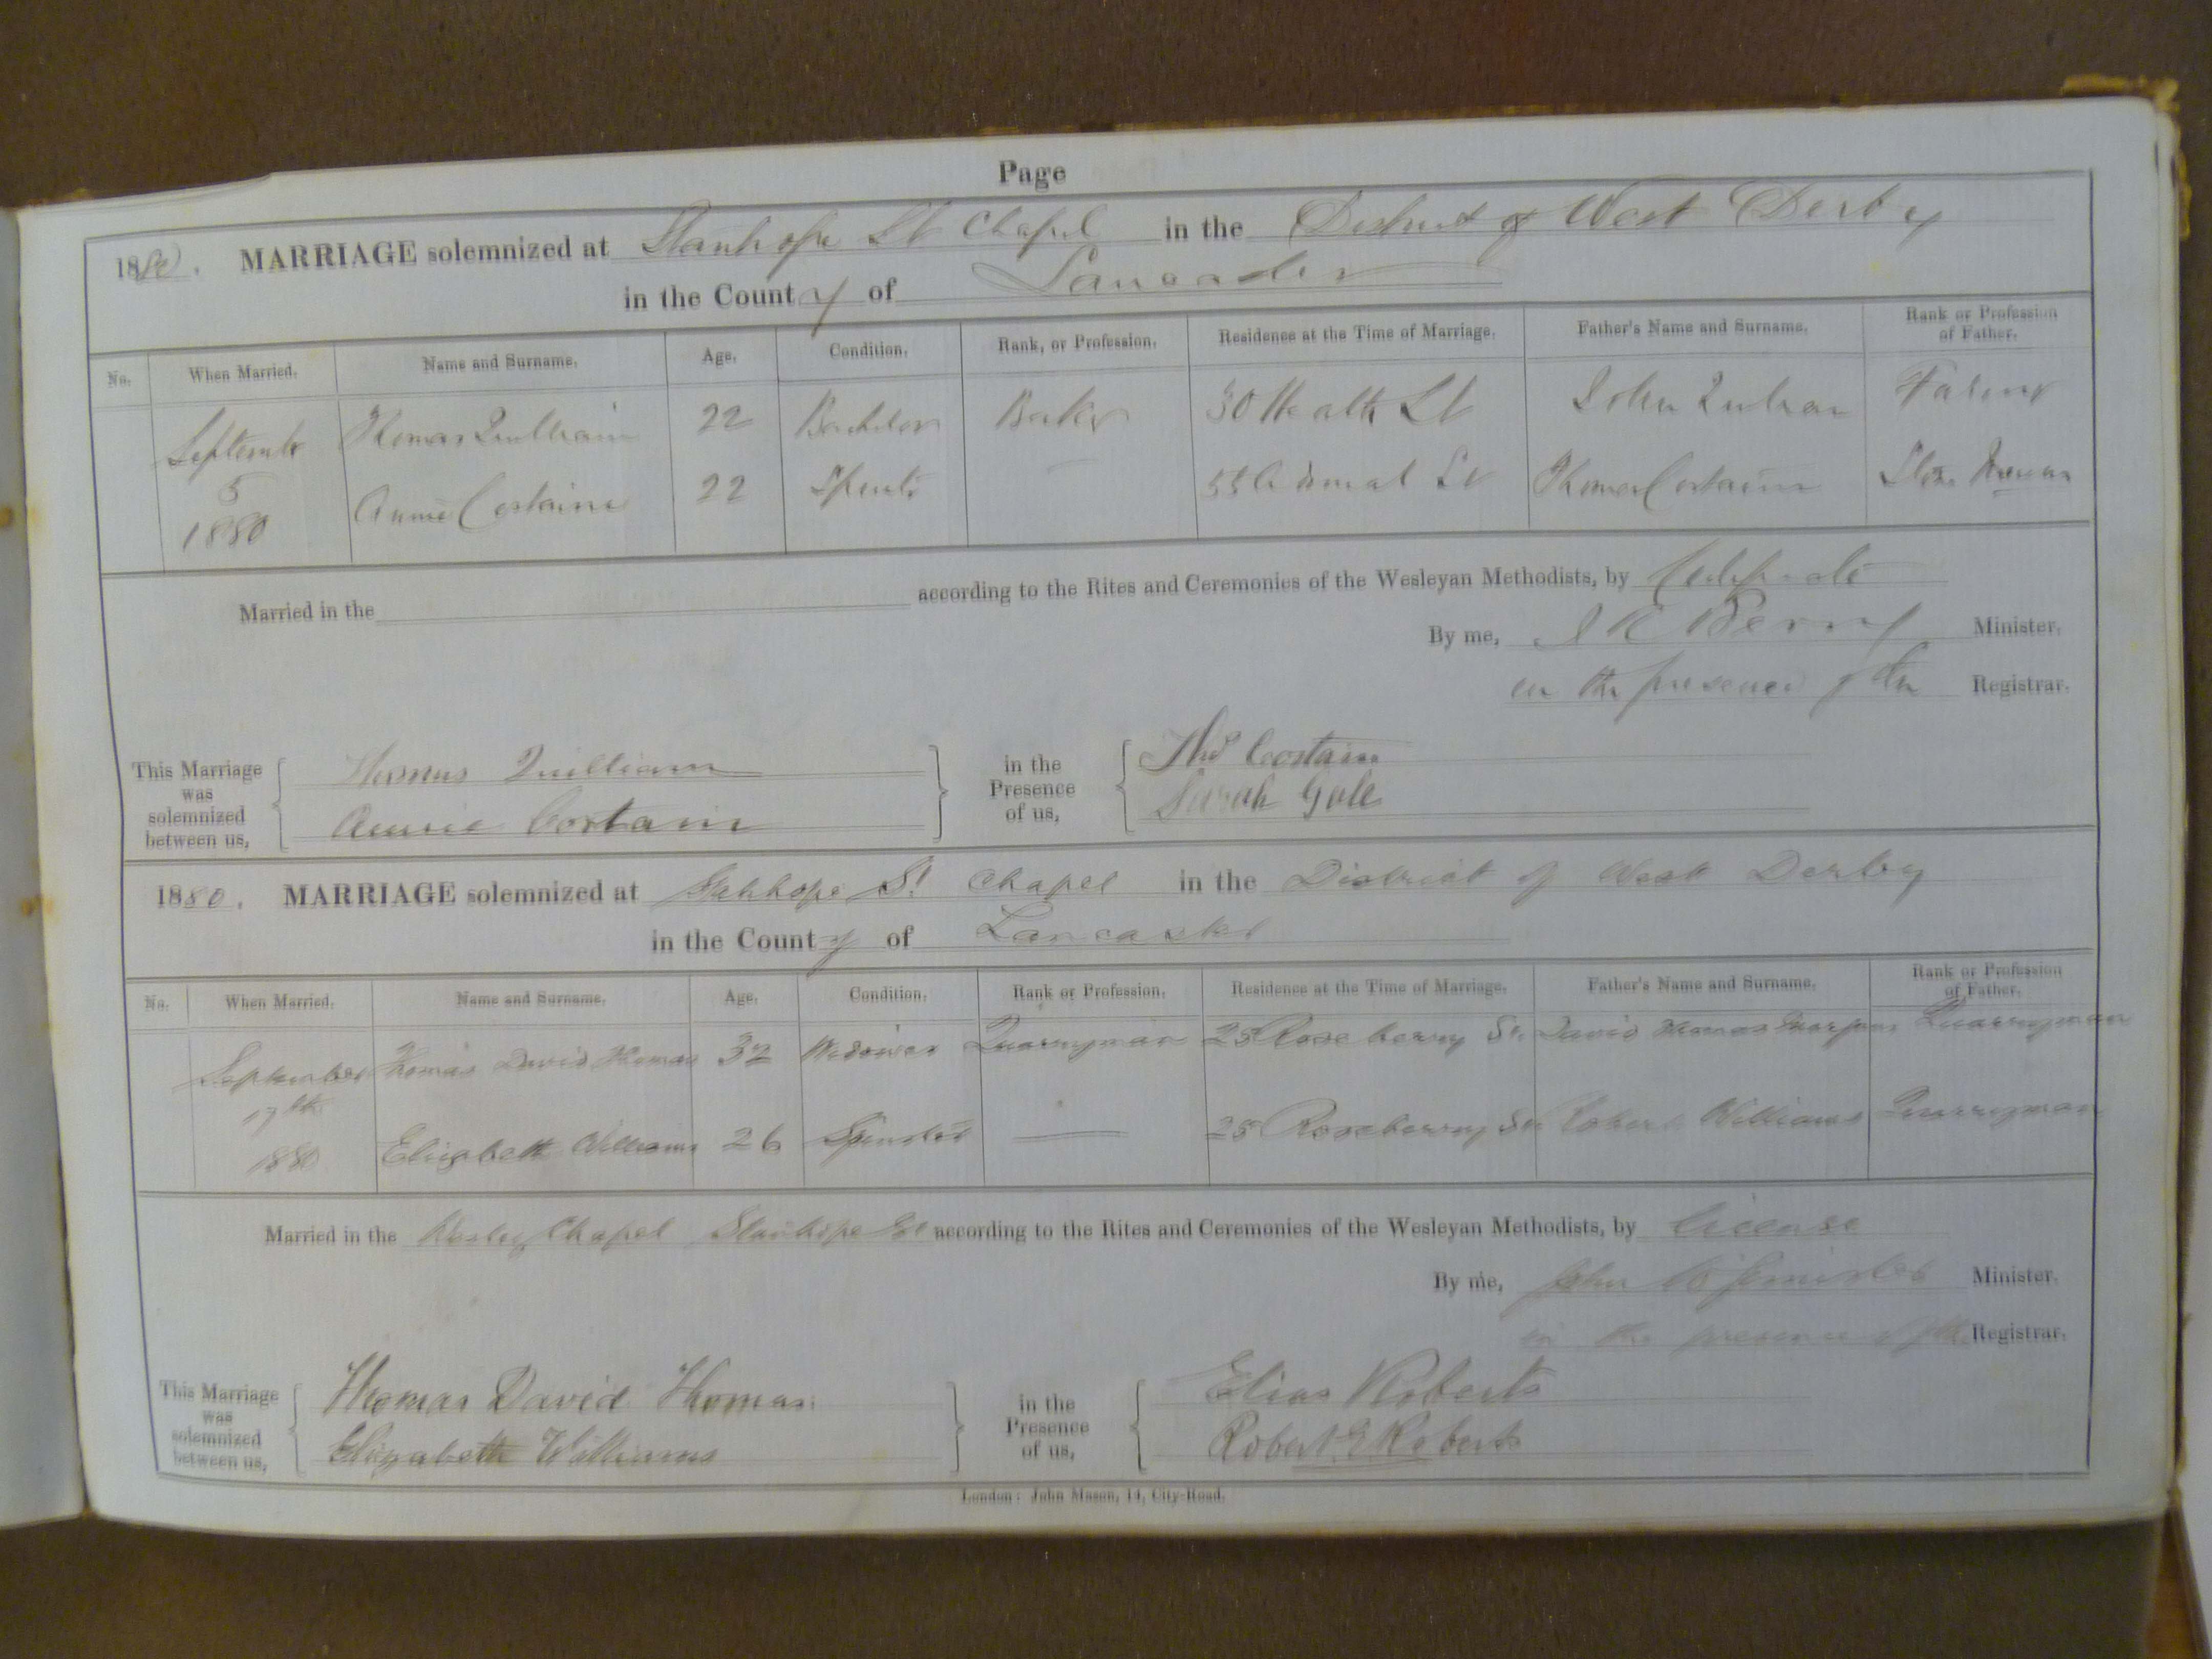 Page
1880. MARRIAGE solemnized at Stanhope St Chapel in the District of West Derby
in the County of Lancaster
No. When Married. Name and Surname. Age. Condition. Rank, or Profession. Residence at the Time of Marriage. Father's Name and Surname. Rank or Profession of Father.
September 5 1880 Thomas Quilliam 22 Bachelor Baker 30 Heath St John Quilliam
Annie Costain 22 55 Admiral St Thomas Costain
Married in the according to the Rites and Ceremonies of the Wesleyan Methodists, by Certificate
By me, Berry Minister.
in the presence of Registrar.
This Marriage was solemnized between us, Thomas Quilliam in the Presence of us, Thos Costain
Annie Costain Sarah Gale
1880. MARRIAGE solemnized at Stanhope St Chapel in the District of West Derby
in the County of Lancaster
No. When Married. Name and Surname. Age. Condition. Rank or Profession. Residence at the Time of Marriage. Father's Name and Surname. Rank or Profession of Father.
September 17th 1880 Thomas David Thomas 32 Widower Quarryman 25 Roseberry St. David Thomas Quarryman
Elizabeth Williams 26 Spinster 25 Roseberry St Robert Williams Quarryman
Married in the Wesley Chapel Stanhope St according to the Rites and Ceremonies of the Wesleyan Methodists, by license
By me, John Minister.
in the presence of Registrar.
This Marriage was solemnized between us, Thomas David Thomas in the Presence of us, Elias Roberts
Elizabeth Williams Robert E Roberts
London: John Mason, 14, City-Road.